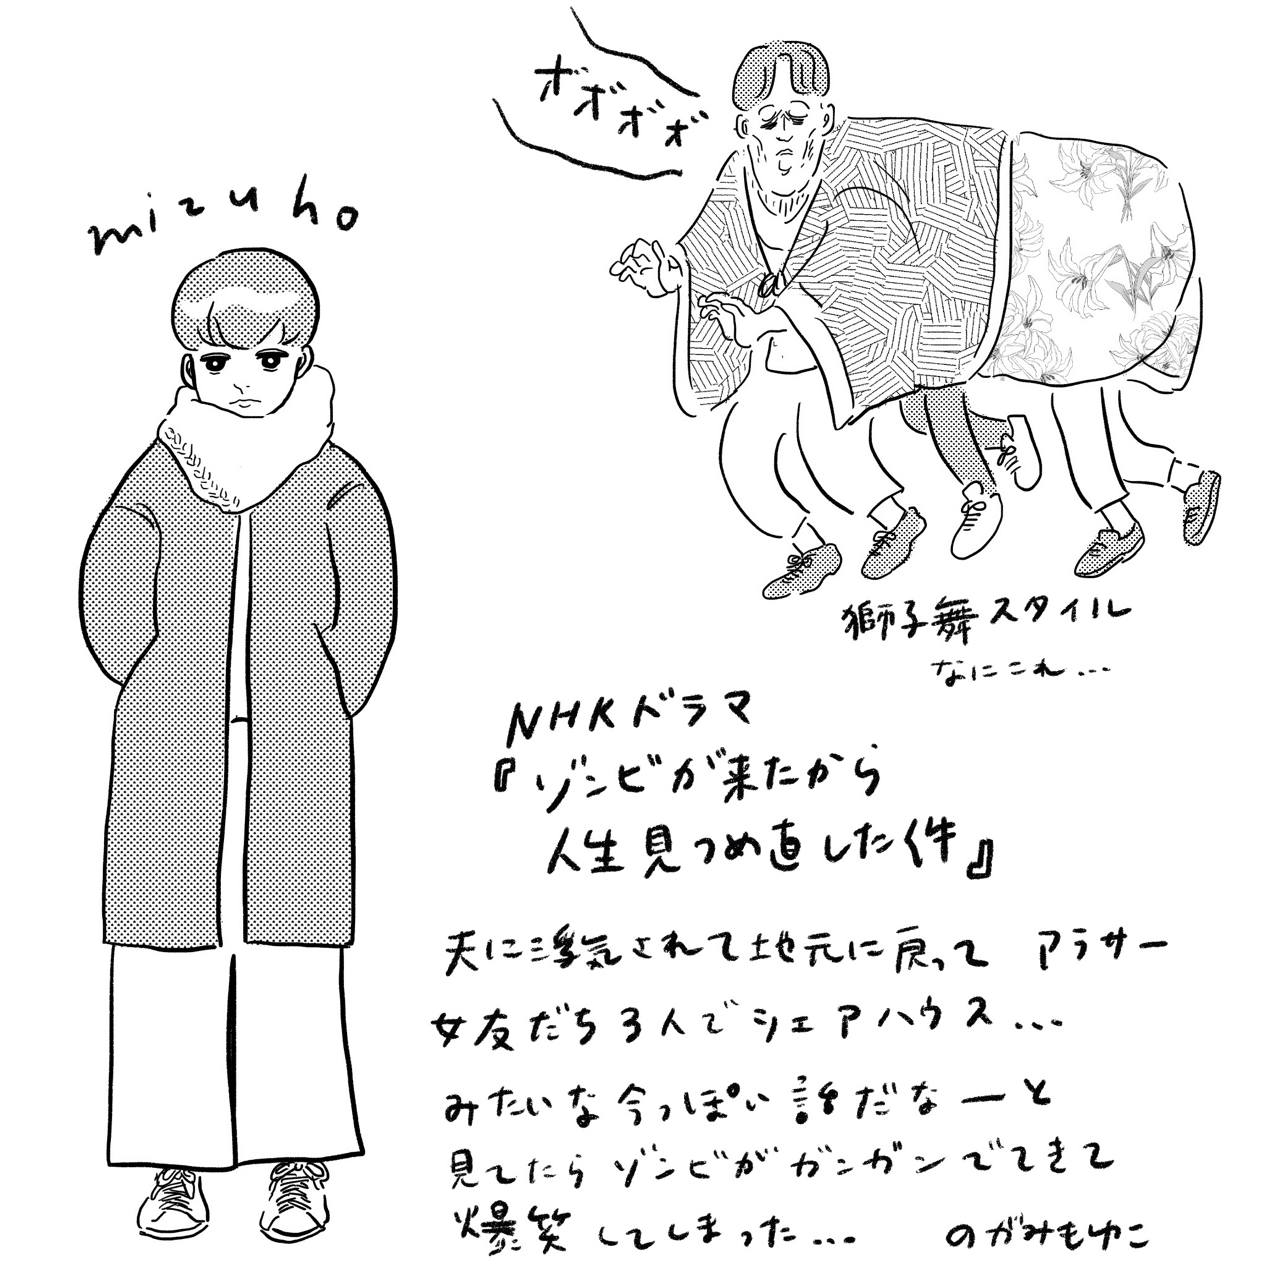 mizuho
ボボボボ
獅子舞スタイル
なにこれ...
NHKドラマ
『ゾンビが来たから
人生見つめ直した件』
夫に浮気されて地元に戻って アラサー
女友だち3人でシェアハウス...
みたいな今っぽい話だなーと
見てたらゾンビがガンガンでてきて
爆笑してしまった...
のがみもゆこ